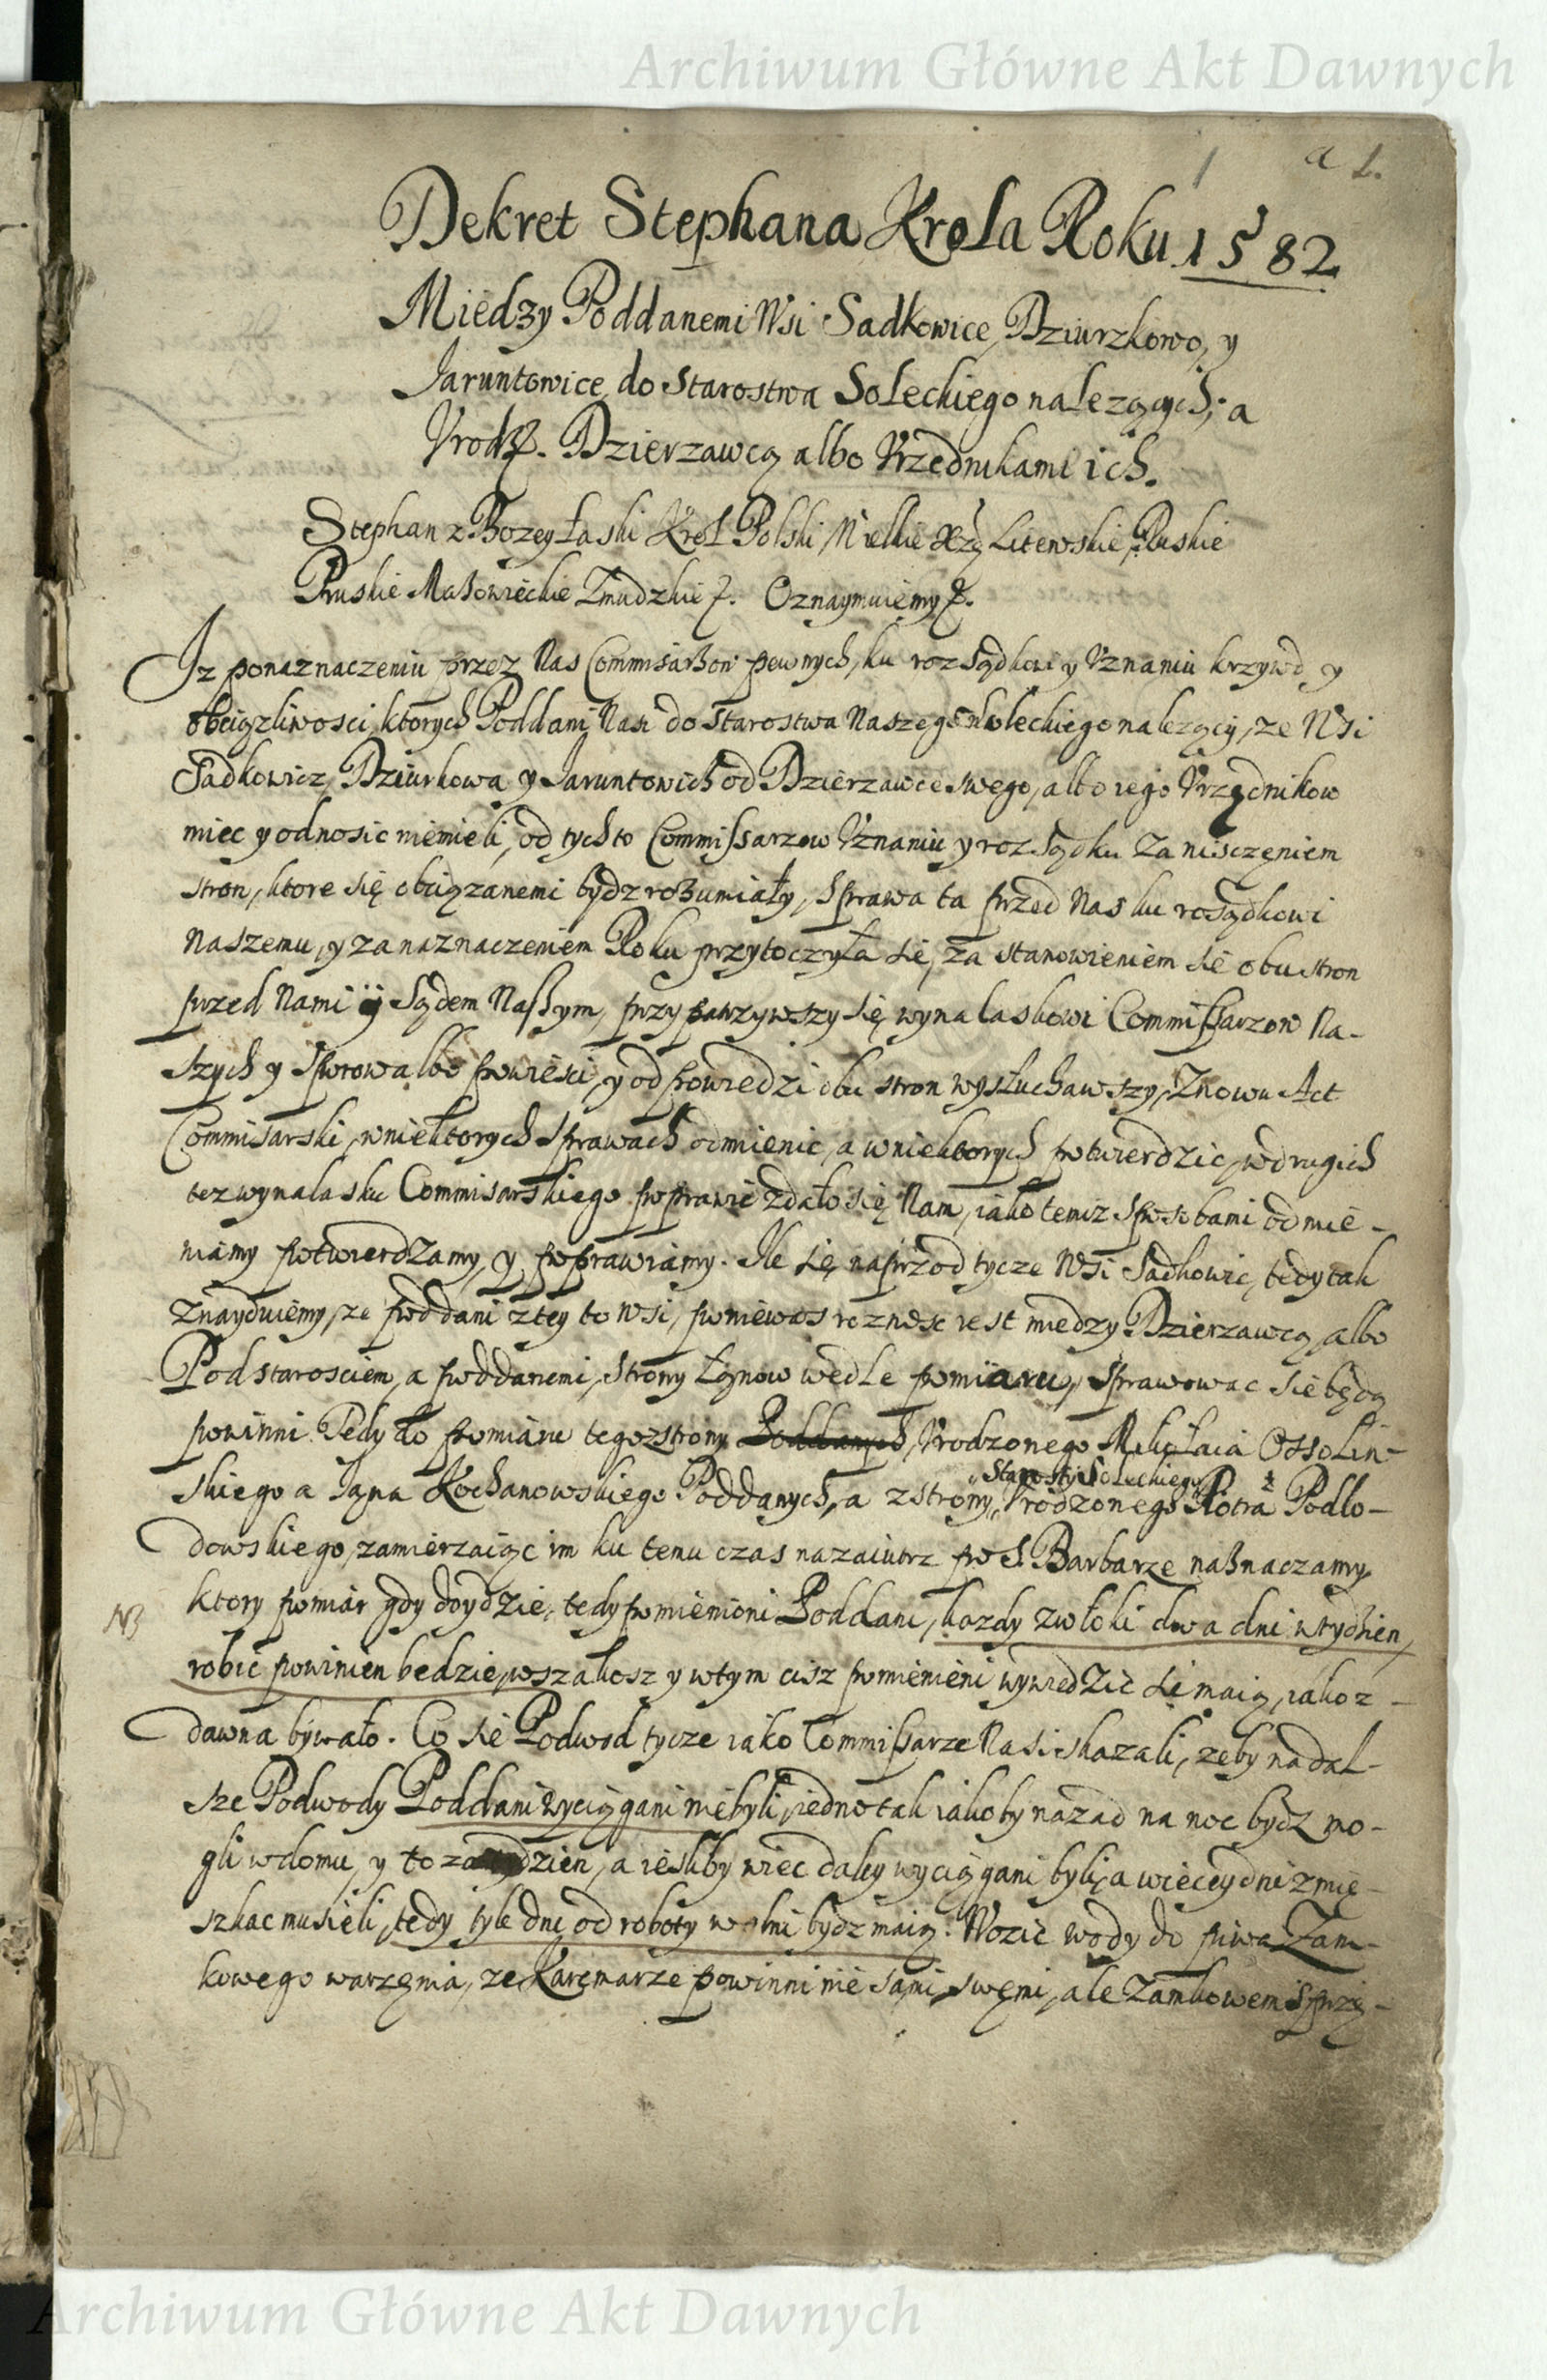 Archiwum Główne Akt Dawnych
1 a 1.
Dekret Stephana Krola Roku 1582
Między Poddanemi Wsi Sadkowice, Dziurzkowo, y
Jaruntowice, do Starostwa Soleckiego nalezących; a
Vrodz. Dzierzawcą albo Vrzednikami ich.
Stephan z Bozey Łaski Krol Polski Wielkie Xżę Litewskie, Ruskie
Pruskie Mazowieckie Zmudzkie &. Oznaymuiemy &.
Jz ponaznaczeniu przez Nas Commisarzow pewnych, ku rozsądkowi y Vznaniu krzywd, y
obciązliwosci, ktorych Poddani Nasi do Starostwa Naszego Soleckiego nalezący, ze Wsi
Sadkowicz, Dziurkowa y Jaruntowich od Dzierzawce swego, albo iego Vrzędnikow
miec y odnosic niemieli, od tych to Commissarzow Vznaniu y rozsądku za nisczęniem
stron, ktore się obciązanemi bydz rozumiały, sprawa ta przed Nas ku rosądkowi
Naszemu, y za naznaczeniem Roku przytoczyła się, za stanowieniem się obu stron
przed Nami y Sądem Naszym, przypatrzywszy się wynalaskowi Commissarzow Na-
szych y sporow albo powiesci, y odpowiedzi obu stron wysłuchawszy, Znowu Act
Commisarski, w niektorych sprawach odmienic, a w niektorych potwierdzic, w drugich
tez wynalasku Commisarskiego poprawic zdało się Nam, iako temiz sposobami odmie-
niamy potwierdzamy, y poprawiamy. Ile się naprzod tycze Wsi Sadkowic, tedy tak
znayduiemy, ze poddani z tey to Wsi, poniewas roznosc iest miedzy Dzierzawcą, albo
Podstarosciem, a poddanemi, strony Łąnow wedle pomiaru, sprawowac się będą
powinni. Tedy do pomiaru tego z strony Poddanych, Vrodzonego Mikołaia Ossolin-
skiego a Jąna Kochanowskiego Poddanych, a z strony Vrodzonego Piotra z Podlo-
Starosty Soleckiego
dowskiego, zamierzaiąc im ku temu czas nazaiutrz po S. Barbarze naznaczamy,
NB
ktory pomiar gdy doydzie, tedy pomienioni Poddani, kozdy z włoki dwa dni w tydzien,
robic powinien bedzie, wszakosz y w tym cisz pomienieni wywiedzic się maią, iako z-
dawna bywało. Co się Podwod tycze iako Commissarze Nasi skazali, zeby na dal-
sze Podwody Poddani wyciągani niebyli, iedno tak iakoby nazad na noc bydz mo-
gli w domu, y to za dzien, a iesliby wiec daley wyciągani byli, a wiecey dni zmie-
szkac musieli, tedy tyle dni od roboty wolni bydz maią. Wozic wody do piwa Zam-
kowego warzęnia, ze Karcmarze powinni nie sąmi, swęmi, ale Zamkowem sprzę-
Archiwum Główne Akt Dawnych